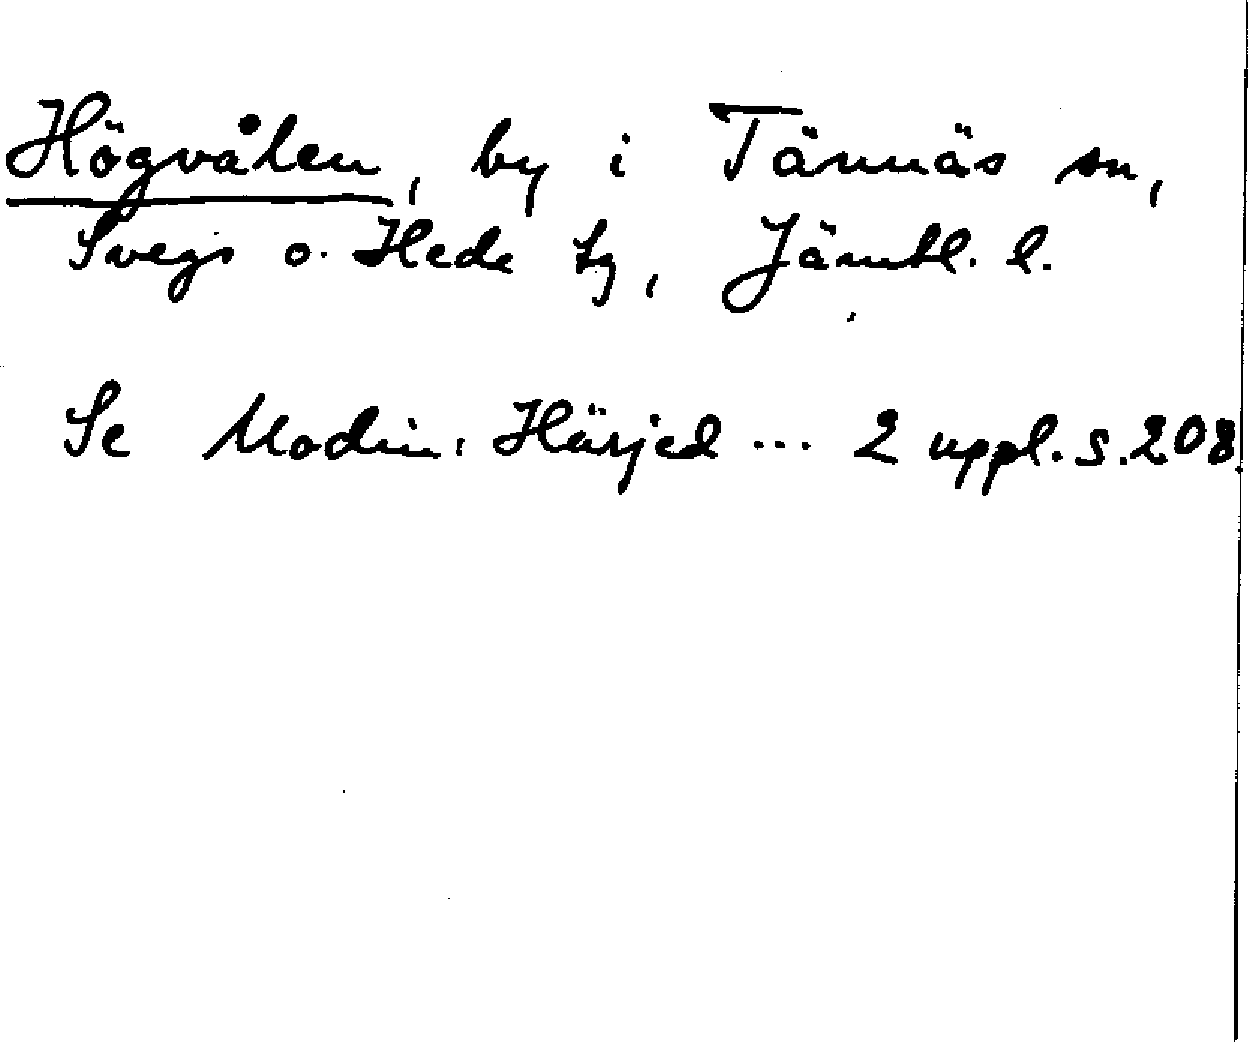 Högvålen, by i Tännäs sn,
Svegs o. Hede tg, Jämtl. l.
Se Modin, Härjed ... 2 uppl. s. 208.